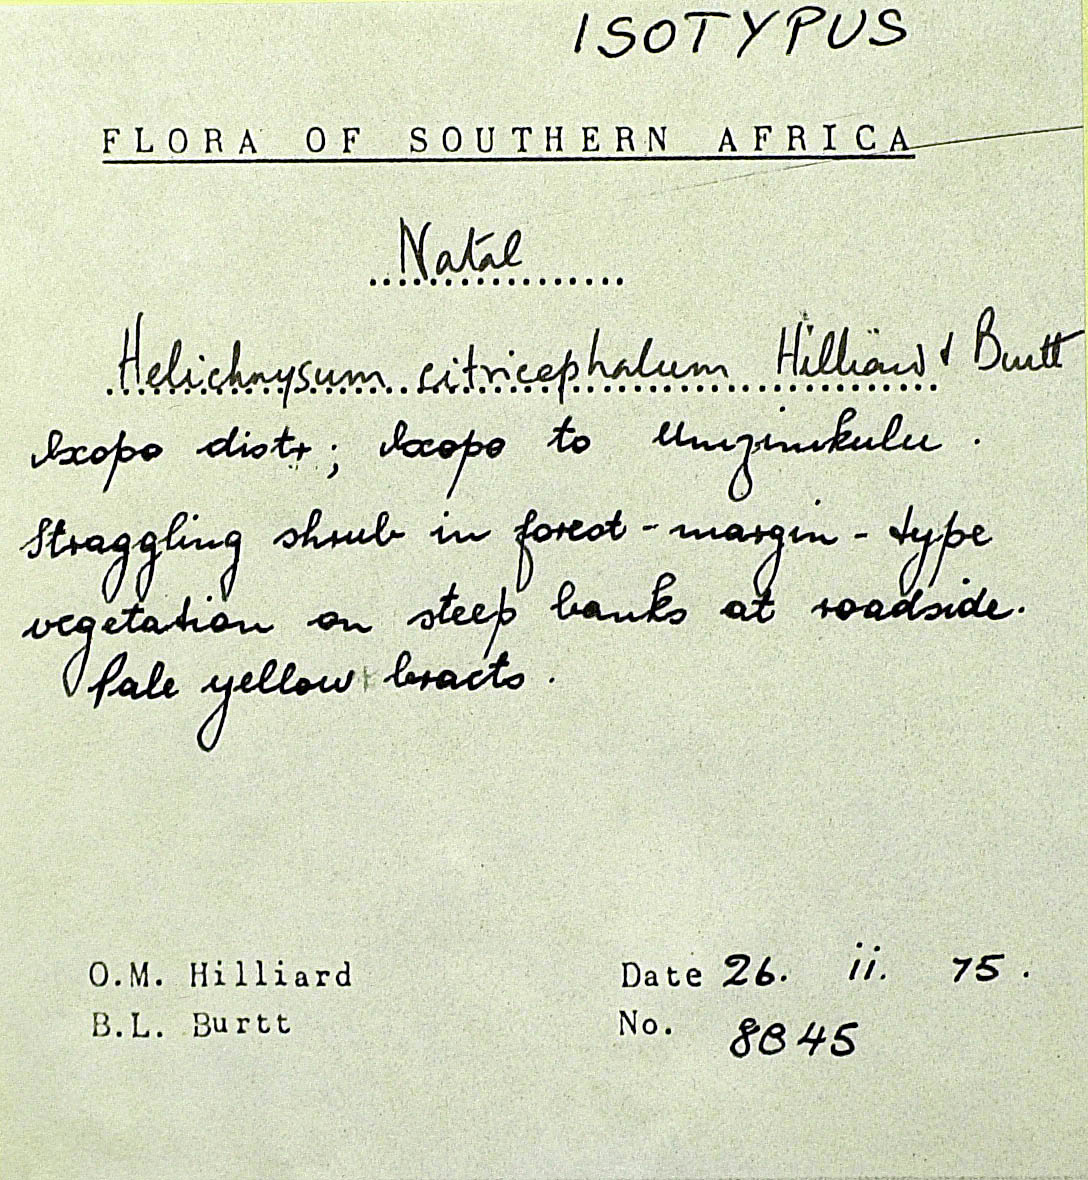 ISOTYPUS
FLORA OF SOUTHERN AFRICA
Natal
Helichrysum citricephalum Hilliard & Burtt
Ixopo distr; Ixopo to Umzimkulu.
Straggling shrub in forest-margin-type
vegetation on steep banks at roadside.
Pale yellow bracts.
O.M. Hilliard Date 26. ii. 75.
B.L. Burtt No. 8045